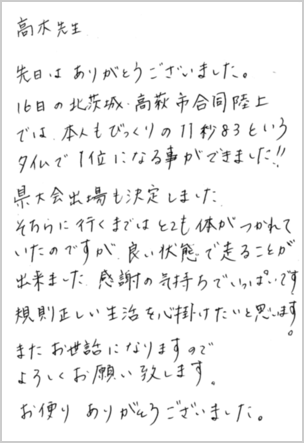 高木先生
先日は ありがとうございました。
16日の北茨城・高萩市合同陸上
では、本人もびっくりの11秒83という
タイムで1位になる事ができました!!
県大会出場も決定しました
そちらに行くまではとても体がつかれて
いたのですが 良い状態で走ることが
出来ました 感謝の気持ちでいっぱいです
規則正しい生活を心掛けたいと思います。
また お世話になりますので
よろしくお願い致します。
お便り ありがとうございました。